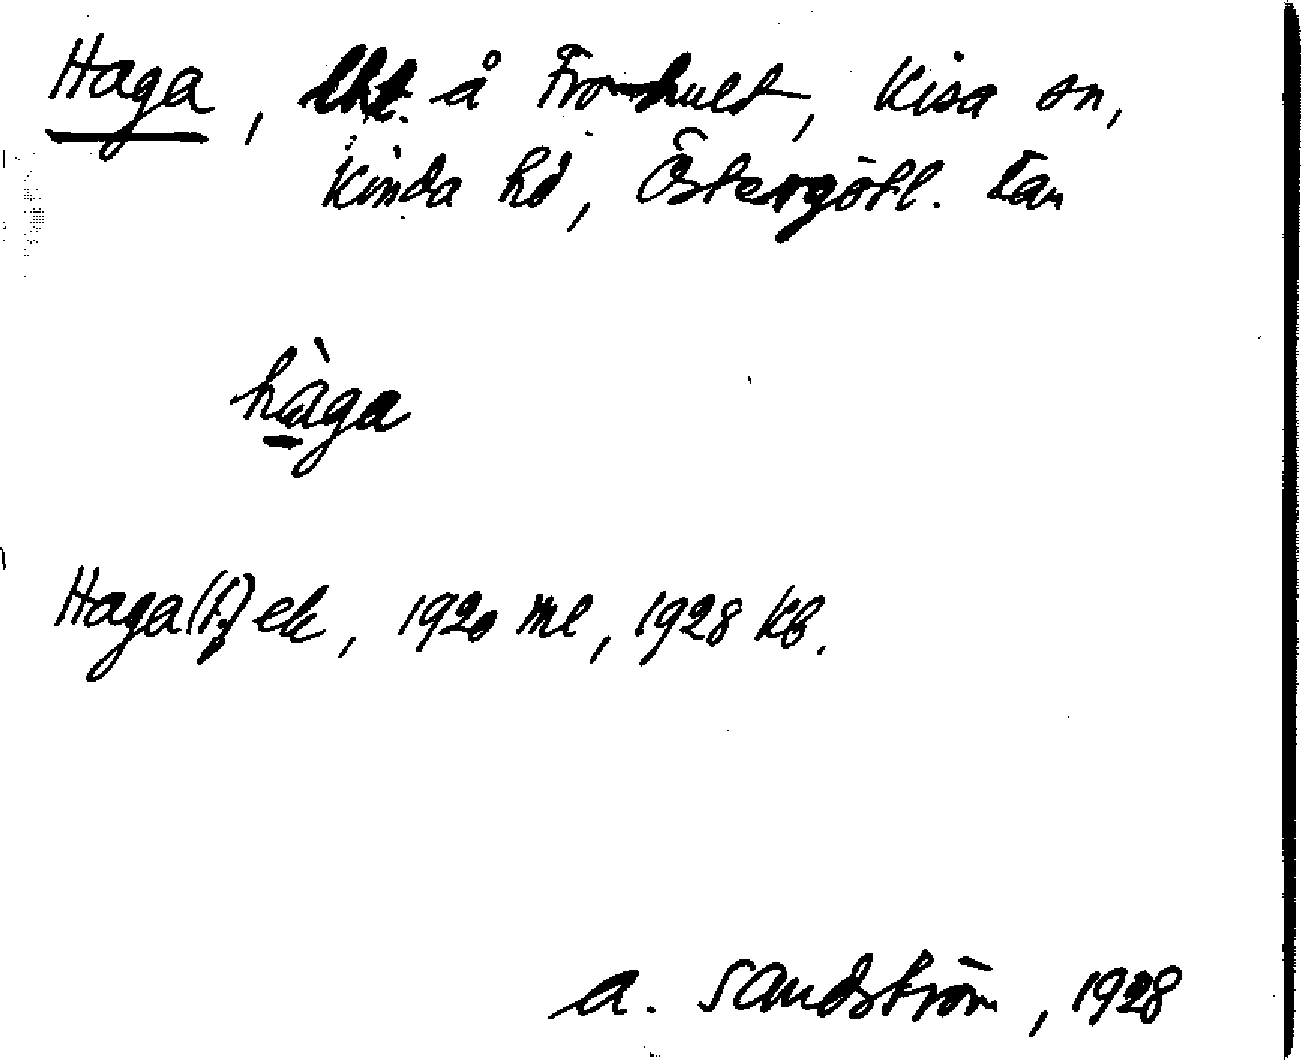 Haga, lht. å Fromhult, Kisa sn,
Kinda hd, Östergötl. län
hàga
Haga (t.) ek, 1920 ml, 1928 kb.
A. Sandström, 1928